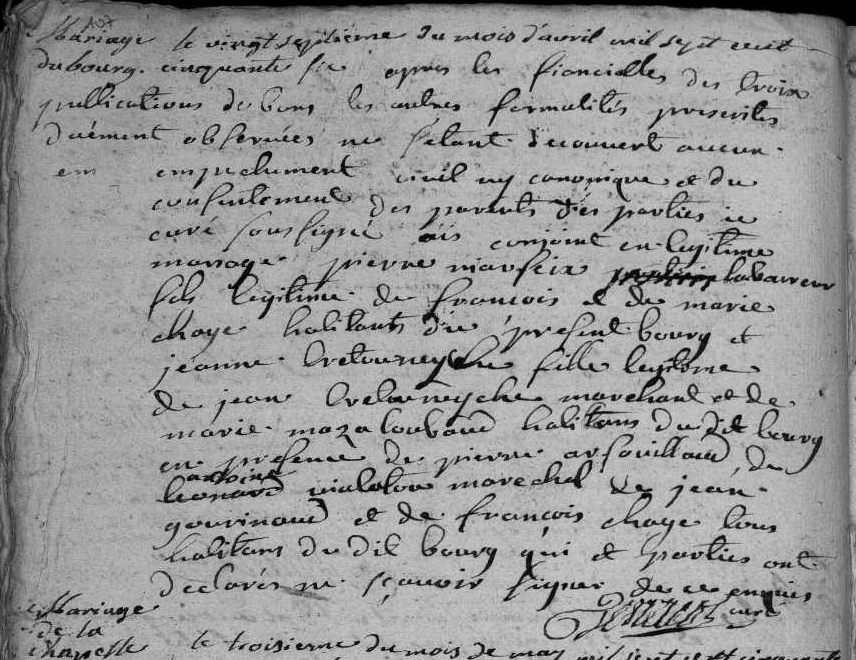 107
Mariage le vingt septieme du mois d'avril mil sept cent
du bourg. cinquante six apres les fiancialles des trois
publications de bans les autres formalités prescrites
duëment observées ne s'etant decouvert aucun
em empechement civil ny canonique et du
consentement des parents des parties je
curé soussigné ais conjoint en legitime
mariage pierre marseix laboureur
fils legitime de francois et de marie
chaye habitants du present bourg et
jeanne bretourneyche fille legitime
de jean bretourneyche marchand et de
marie mazaloubaud habitans du dit bourg
en presence de pierre arfouillaud, de
antoine
leonard vialatou marechal de jean
gourinaud et de francois chaye tous
habitans du dit bourg qui et parties ont
declarés ne sçavoir signer de ce enquis
curé
Mariage
de la
chapelle le troisieme du mois de may mil sept cent cinquante